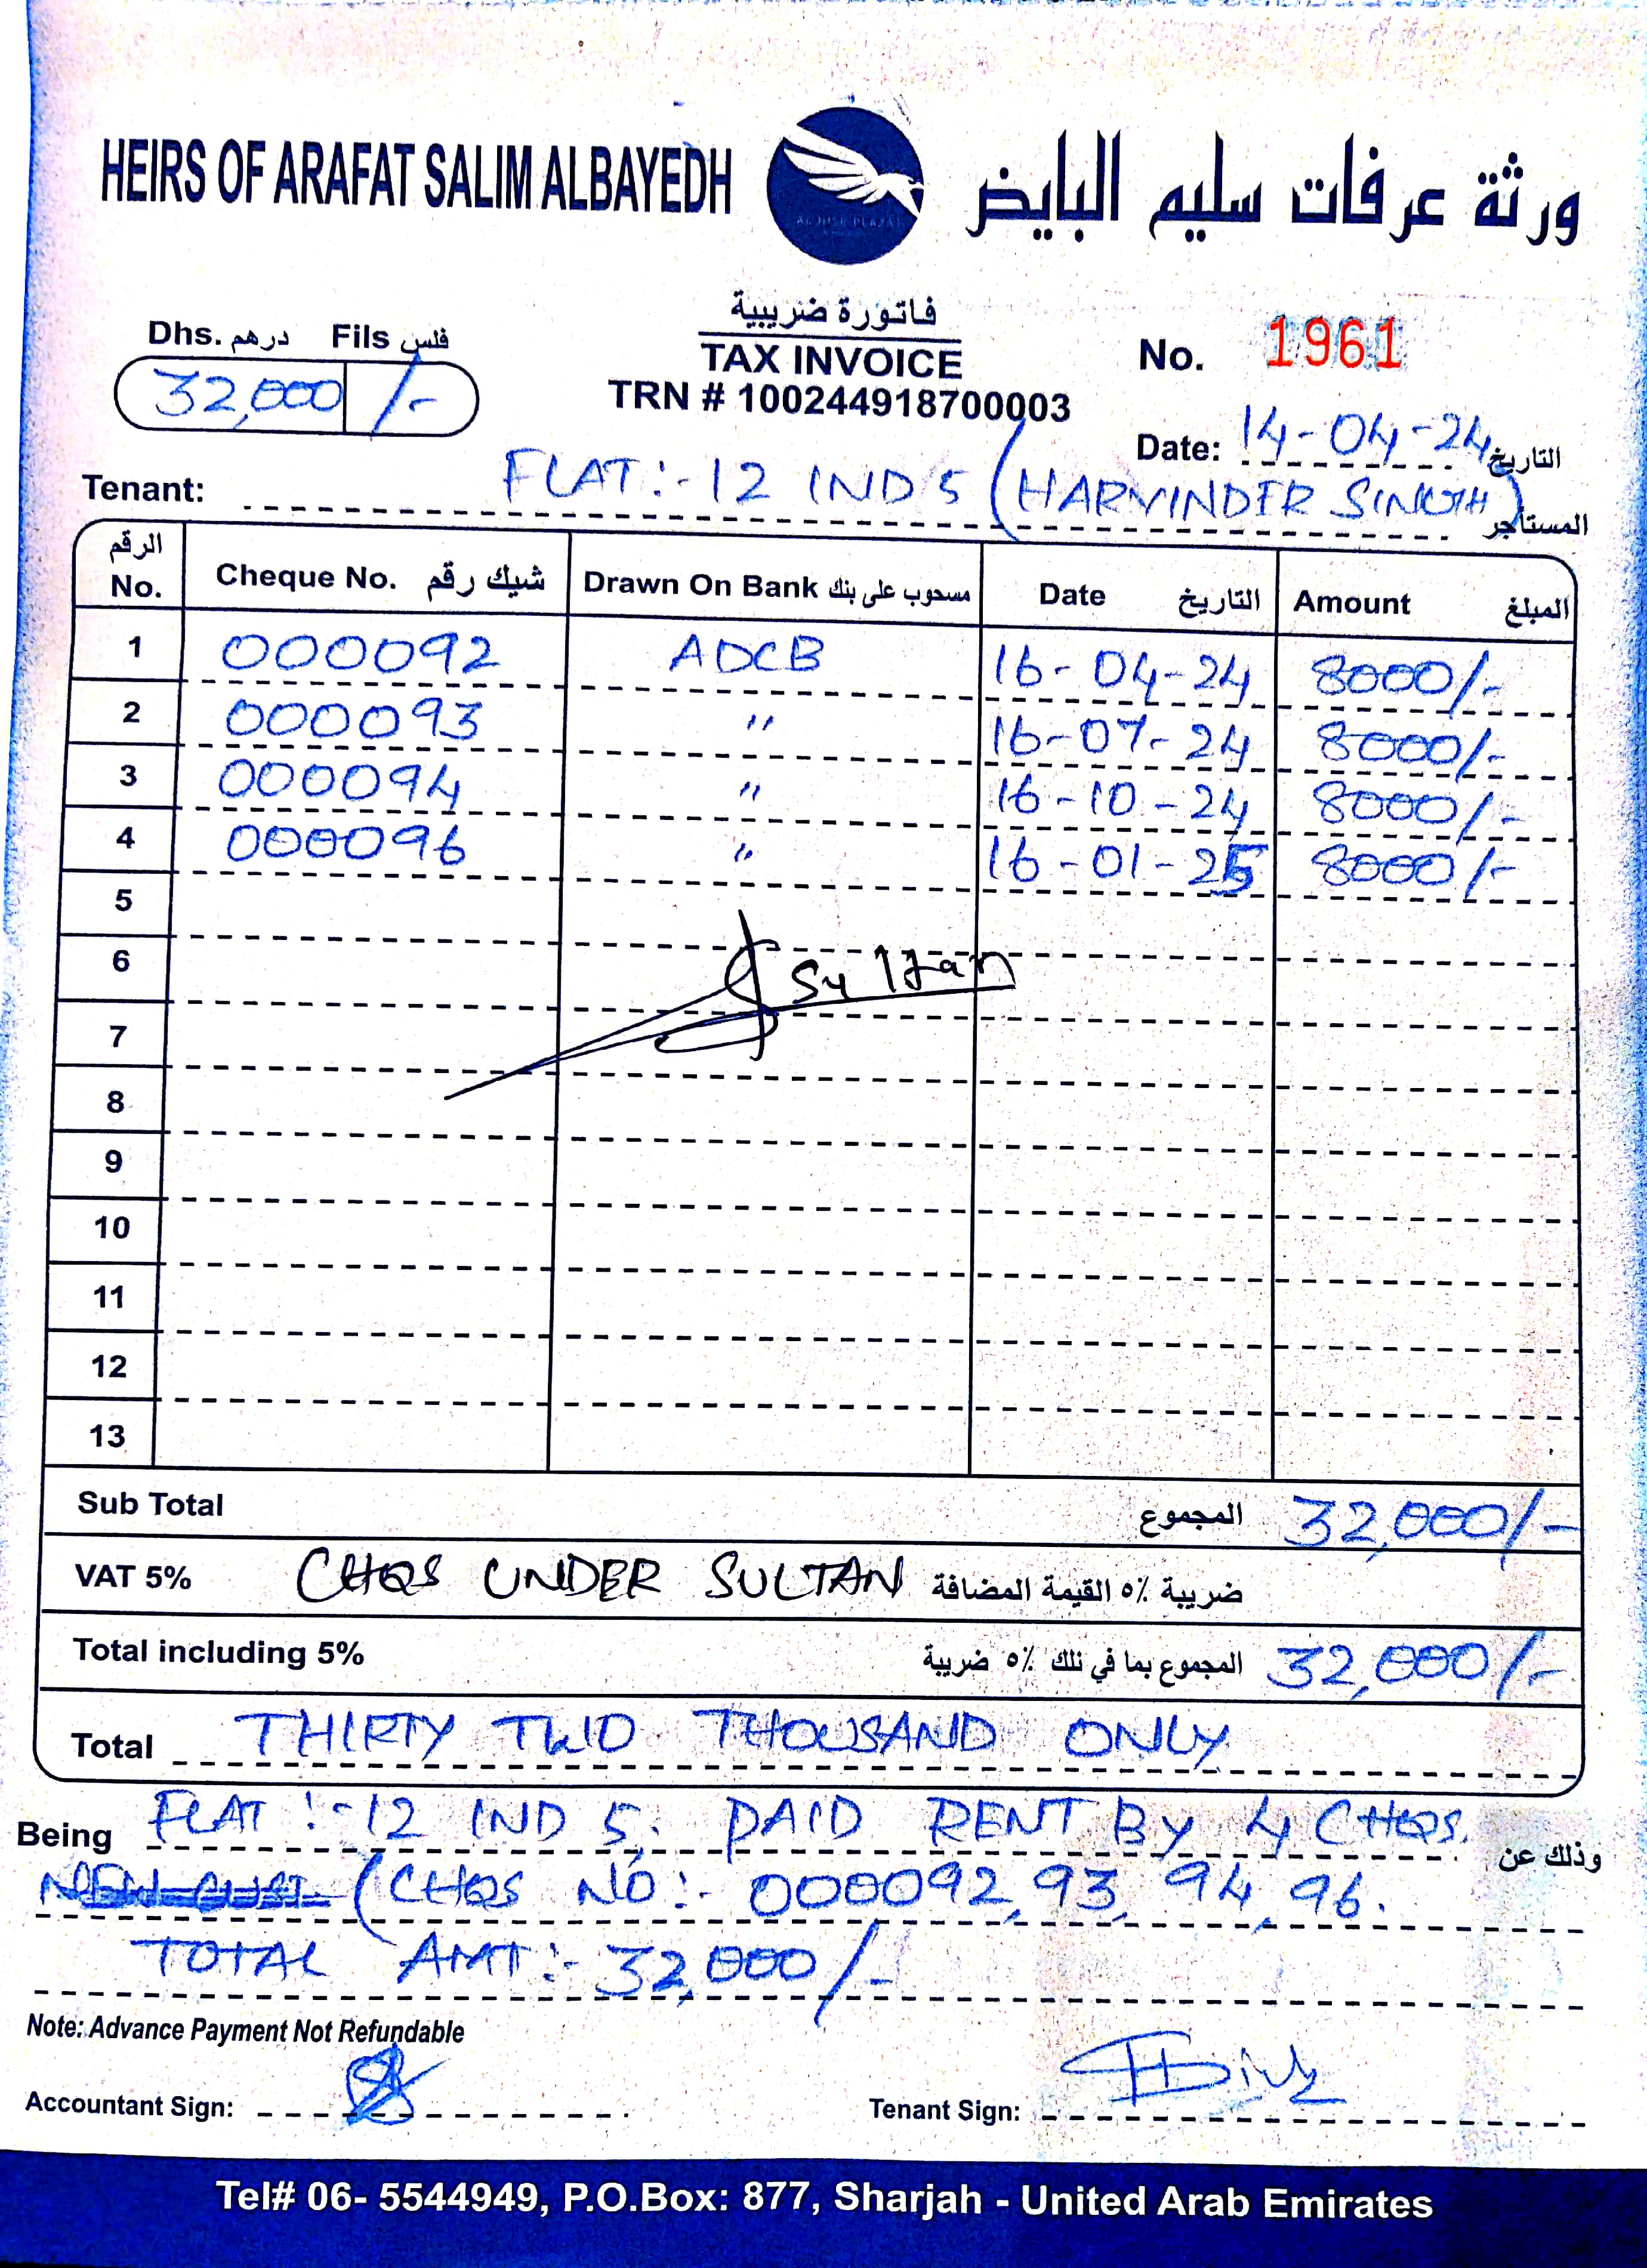 HEIRS OF ARAFAT SALIM ALBAYEDH
ورثة عرفات سليم البايض
Dhs. درهم Fils فلس
32,000 /-
فاتورة ضريبية
TAX INVOICE
TRN # 100244918700003
No. 1961
Date: 14-04-24 التاريخ
Tenant: FLAT:- 12 IND 5 (HARVINDER SINGH) المستأجر
الرقم No. Cheque No. شيك رقم Drawn On Bank مسحوب على بنك Date التاريخ Amount المبلغ
1 000092 ADCB 16-04-24 8000/-
2 000093 " 16-07-24 8000/-
3 000094 " 16-10-24 8000/-
4 000096 " 16-01-25 8000/-
5
6 Sultan
7
8
9
10
11
12
13
Sub Total المجموع 32,000/-
VAT 5% CHQS UNDER SULTAN ضريبة ٥٪ القيمة المضافة
Total including 5% المجموع بما في ذلك ٥٪ ضريبة 32,000/-
Total THIRTY TWO THOUSAND ONLY
Being FLAT:- 12 IND 5, PAID RENT BY 4 CHQS. وذلك عن
(CHQS NO:- 000092, 93, 94, 96.
TOTAL AMT:- 32,000/-
Note: Advance Payment Not Refundable
Accountant Sign: Tenant Sign:
Tel# 06- 5544949, P.O.Box: 877, Sharjah - United Arab Emirates